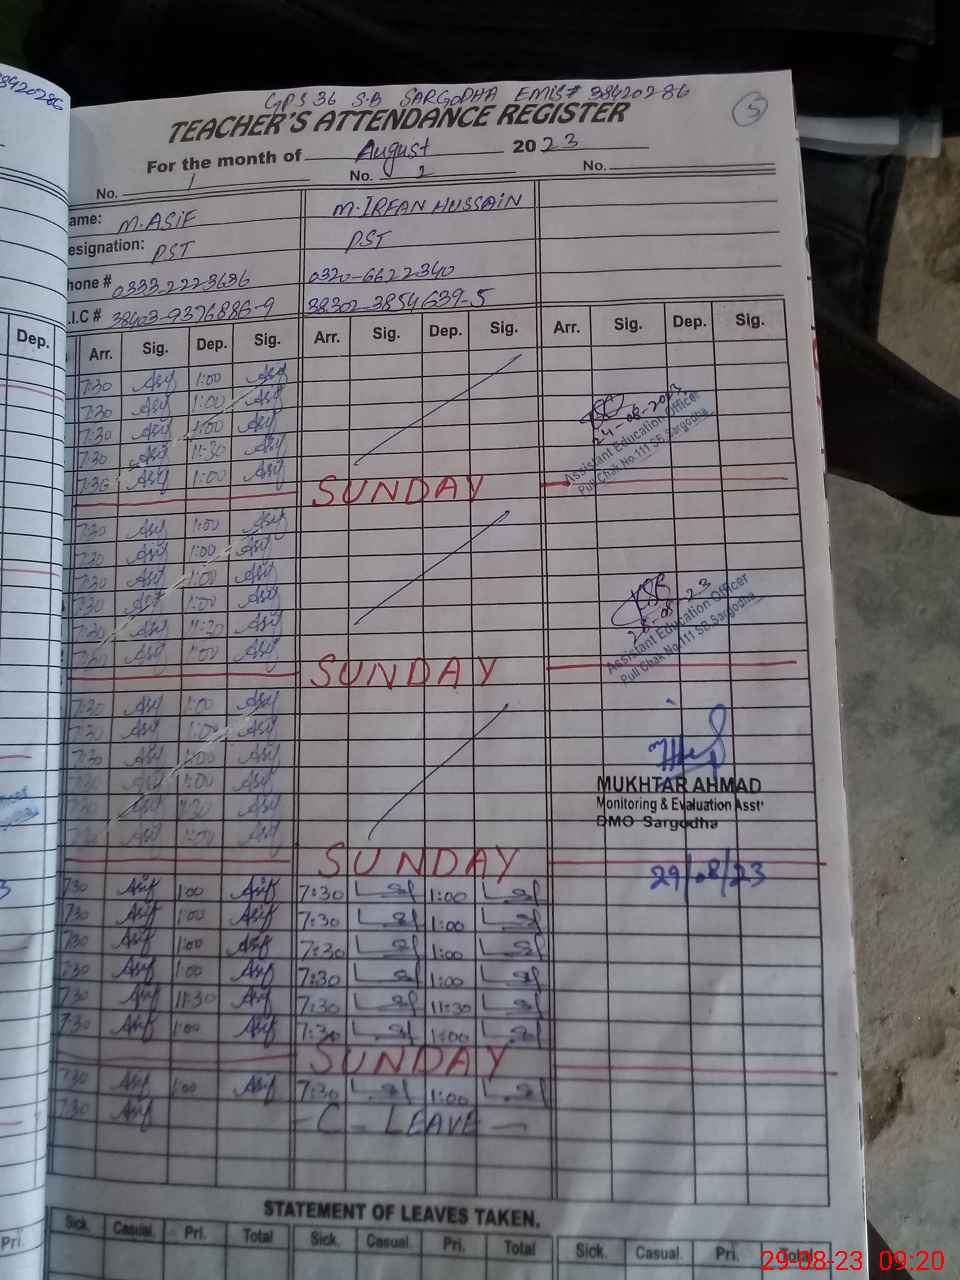 38920286
GPS 36 S.B SARGODHA EMIS# 38420286
5
TEACHER'S ATTENDANCE REGISTER
For the month of August 2023
No. 1 No. 2 No.
ame: M. ASIF M. IRFAN HUSSAIN
esignation: PST PST
hone # 0333 2223636 0320-6622340
.I.C # 38403-9376886-9 38302-3854639-5
Dep. Arr. Sig. Dep. Sig. Arr. Sig. Dep. Sig. Arr. Sig. Dep. Sig.
7:30 Asif 1:00 Asif
7:30 Asif 1:00 Asif
7:30 Asif 1:00 Asif
7:30 Asif 11:30 Asif
7:30 Asif 1:00 Asif
24-08-2023
Assistant Education Officer
Pull Chak No.111 SB Sargodha
SUNDAY
7:30 Asif 1:00 Asif
7:30 Asif 1:00 Asif
7:30 Asif 1:00 Asif
7:30 Asif 1:00 Asif
7:30 Asif 11:30 Asif
7:30 Asif 1:00 Asif
28-08-23
Assistant Education Officer
Pull Chak No.111 SB Sargodha
SUNDAY
7:30 Asif 1:00 Asif
7:30 Asif 1:00 Asif
7:30 Asif 1:00 Asif
Asif 1:00 Asif
Asif 11:30 Asif
Asif 1:00 Asif
MUKHTAR AHMAD
Monitoring & Evaluation Asst
DMO Sargodha
SUNDAY
29/08/23
7:30 Asif 1:00 Asif 7:30 1:00
7:30 Asif 1:00 Asif 7:30 1:00
7:30 Asif 1:00 Asif 7:30 1:00
7:30 Asif 1:00 Asif 7:30 1:00
7:30 Asif 11:30 Asif 7:30 11:30
7:30 Asif 1:00 Asif 7:30 1:00
SUNDAY
7:30 Asif 1:00 Asif 7:30 1:00
7:30 Asif - C - LEAVE -
STATEMENT OF LEAVES TAKEN.
Pri. Sick. Casual. Pri. Total Sick. Casual. Pri. Total Sick. Casual. Pri. Total
29-08-23 09:20